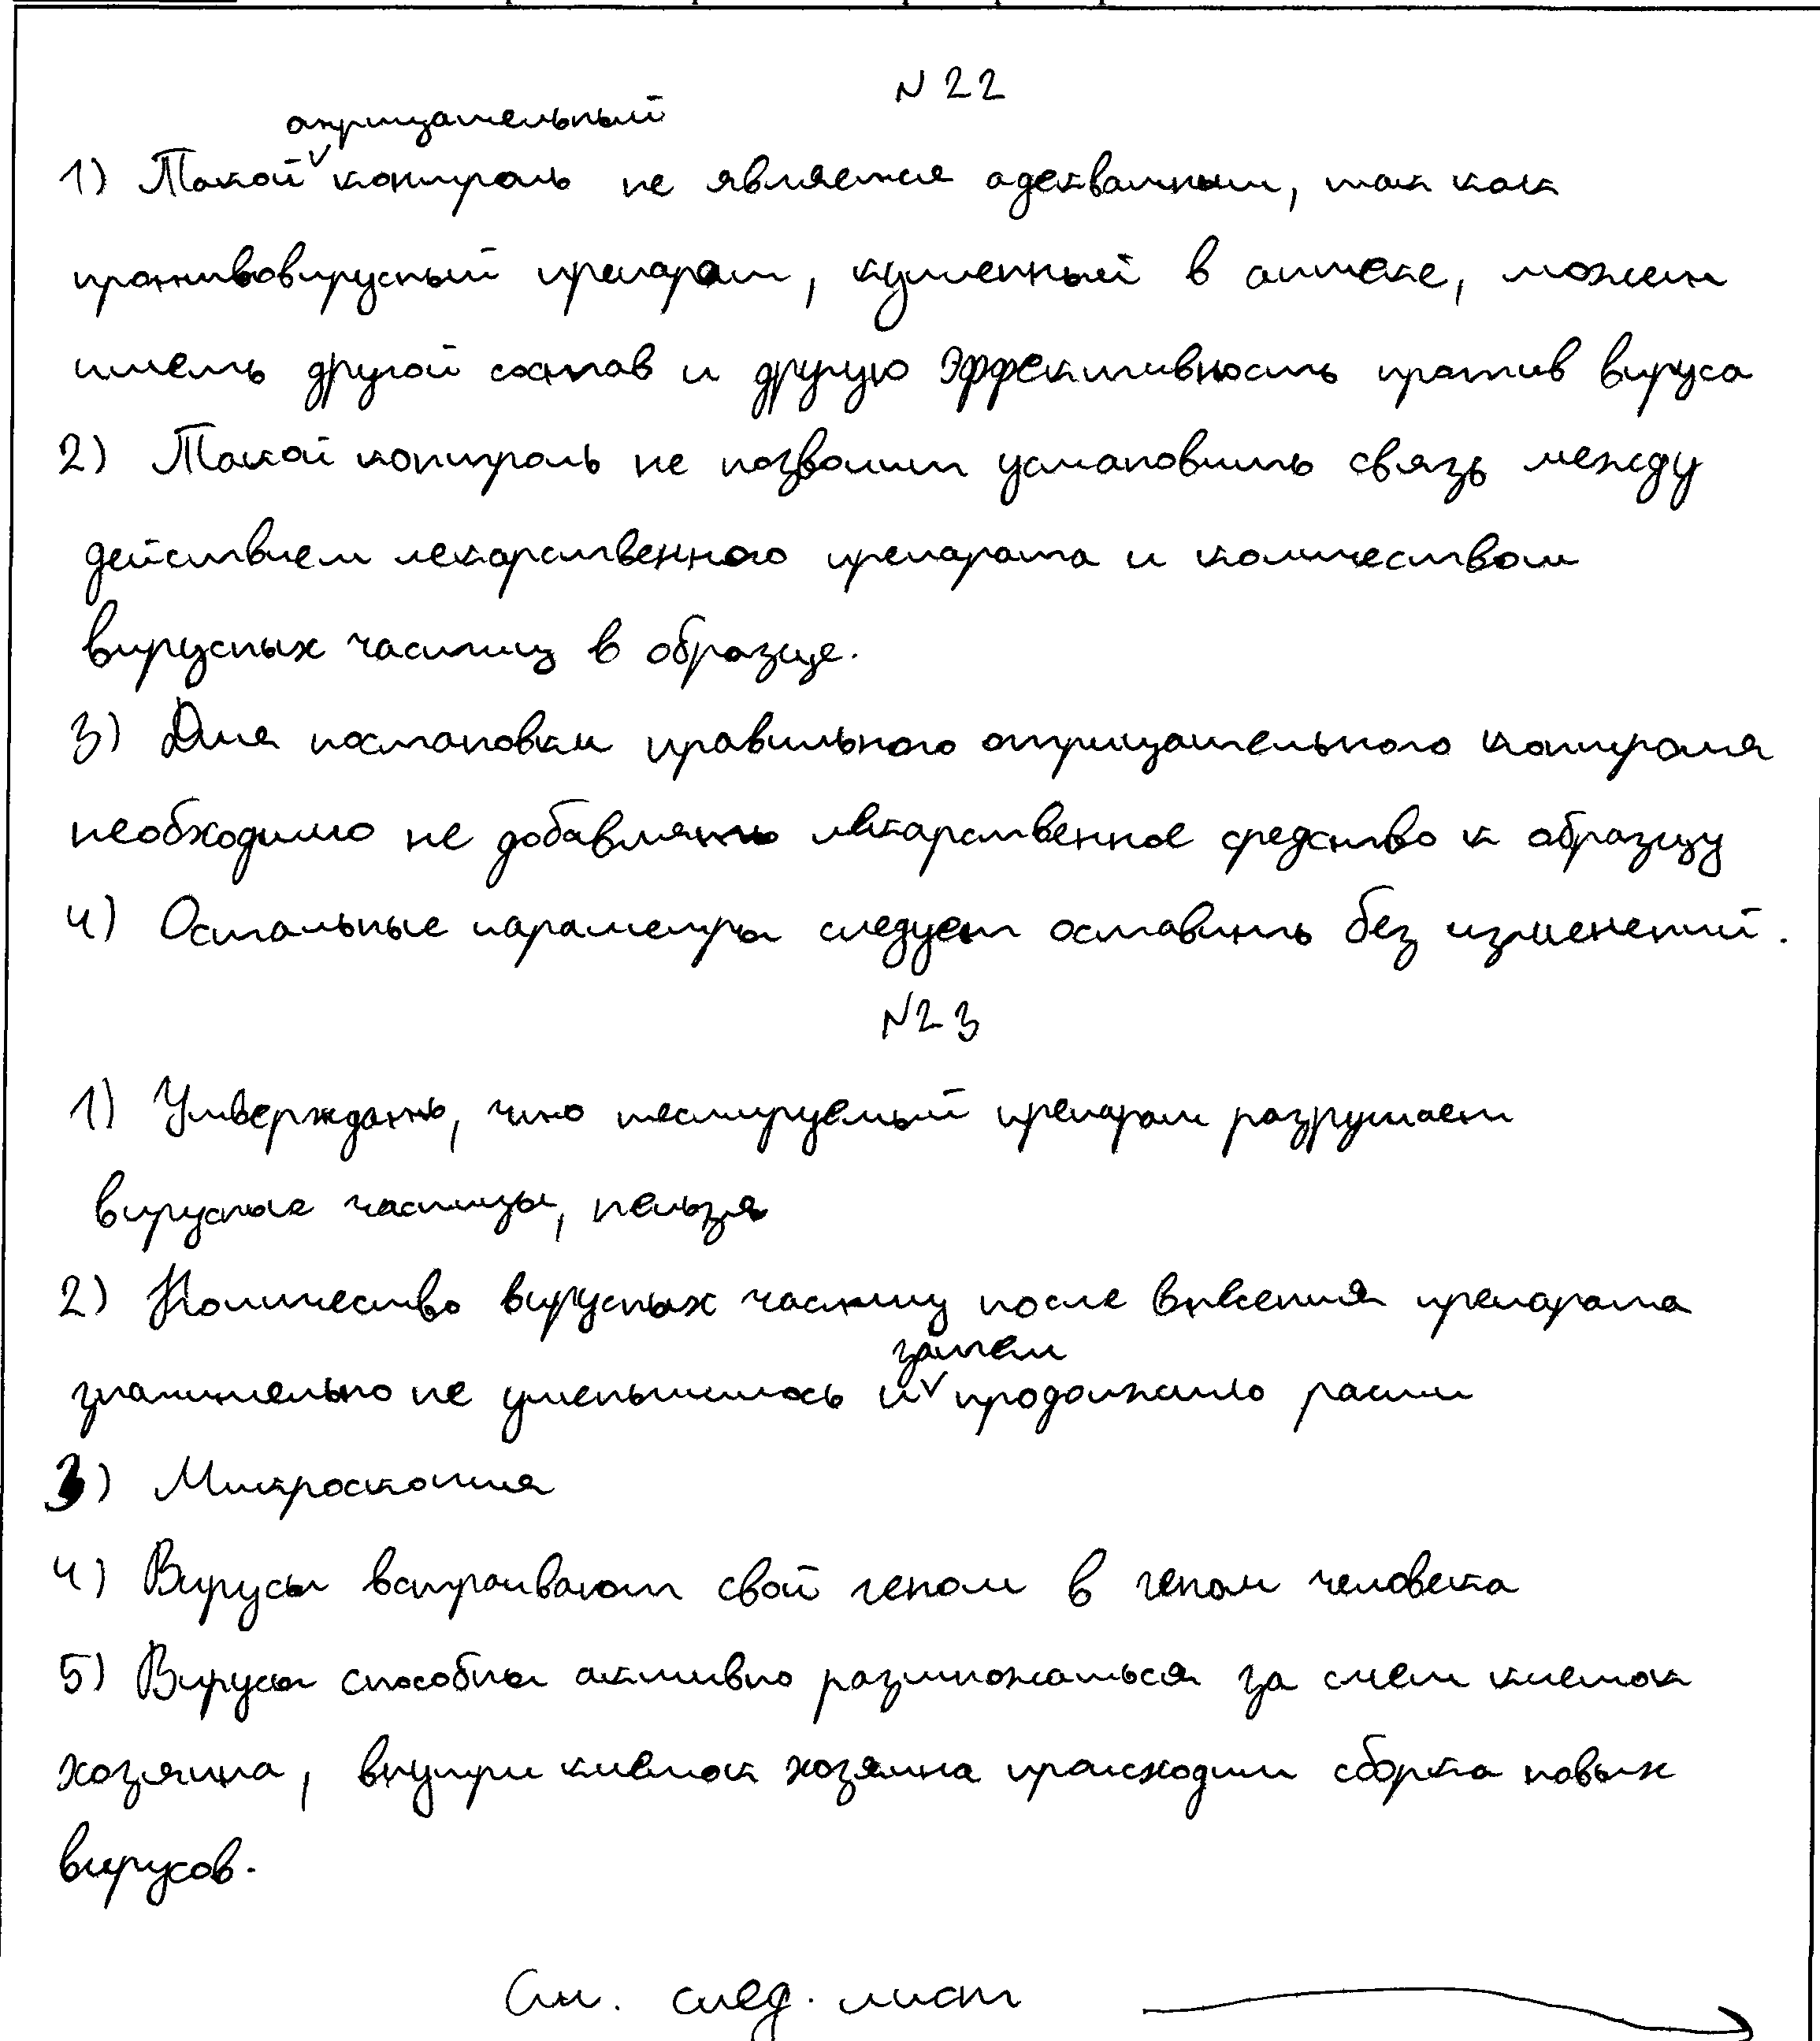 N 22
отрицательный
1) Такой контроль не является адекватным, так как
противовирусный препарат, купленный в аптеке, может
иметь другой состав и другую эффективность против вируса
2) Такой контроль не позволит установить связь между
действием лекарственного препарата и количеством
вирусных частиц в образце.
3) Для постановки правильного отрицательного контроля
необходимо не добавлять лекарственное средство к образцу
4) Остальные параметры следует оставить без изменений.
N23
1) Утверждать, что тестируемый препарат разрушает
вирусные частицы, нельзя
2) Количество вирусных частиц после внесения препарата
затем
значительно не уменьшилось и продолжило расти
3) Микроскопия
4) Вирусы встраивают свой геном в геном человека
5) Вирусы способны активно размножаться за счет клеток
хозяина, внутри клеток хозяина происходит сборка новых
вирусов.
См. след. лист